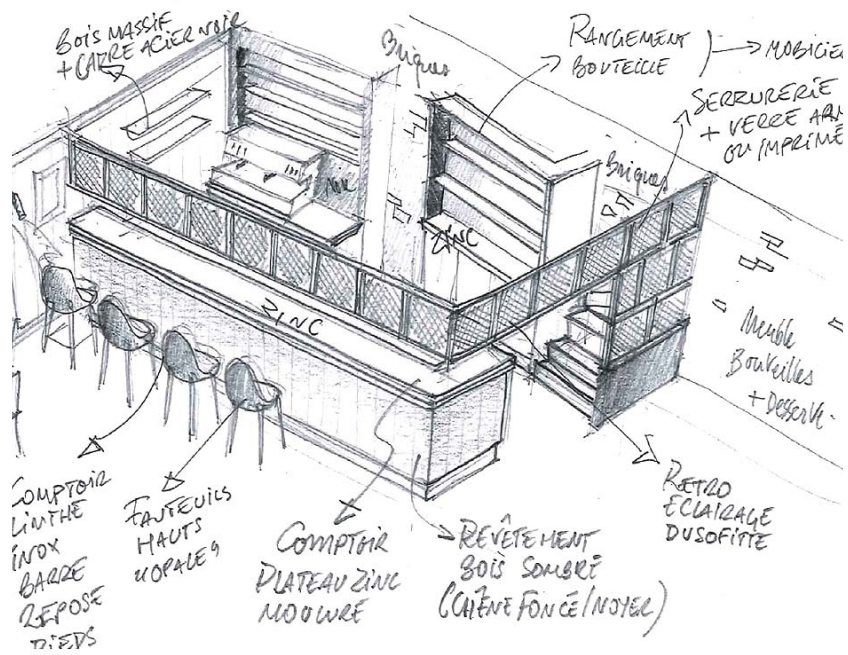 BOIS MASSIF
+ CADRE ACIER NOIR
Briques
RANGEMENT
BOUTEILLE
MOBILIER
SERRURERIE
+ VERRE ARM
OU IMPRIMÉ
Briques
ZINC
ZINC
Meuble
Bouteilles
+ Desserte
COMPTOIR
PLINTHE
INOX
BARRE
REPOSE
PIEDS
FAUTEUILS
HAUTS
COMPTOIR
PLATEAU ZINC
MOULURÉ
REVÊTEMENT
BOIS SOMBRE
(CHÊNE FONCÉ/NOYER)
RETRO
ECLAIRAGE
DU SOFITTE